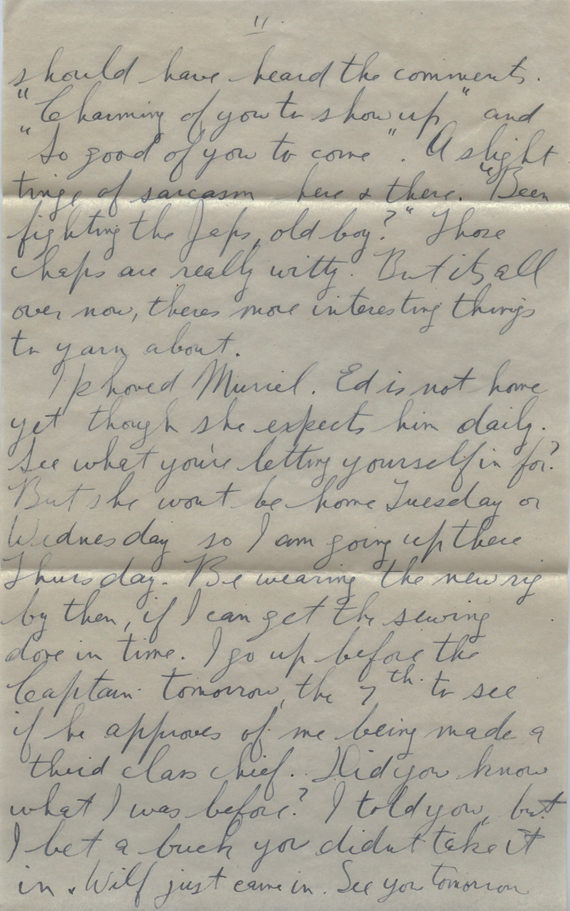 11.
should have heard the comments.
"Charming of you to show up" and
"So good of you to come". A slight
tinge of sarcasm here & there. "Been
fighting the Japs, old boy?" Those
chaps are really witty. But its all
over now, theres more interesting things
to yarn about.
I phoned Muriel. Ed is not home
yet though she expects him daily.
See what you're letting yourself in for?
But she wont be home Tuesday or
Wednesday so I am going up there
Thursday. Be wearing the new rig
by then, if I can get the sewing
done in time. I go up before the
Captain tomorrow, the 7th to see
if he approves of me being made a
third class chief. Did you know
what I was before? I told you, but
I bet a buck you didnt take it
in. Wilf just came in. See you tomorrow